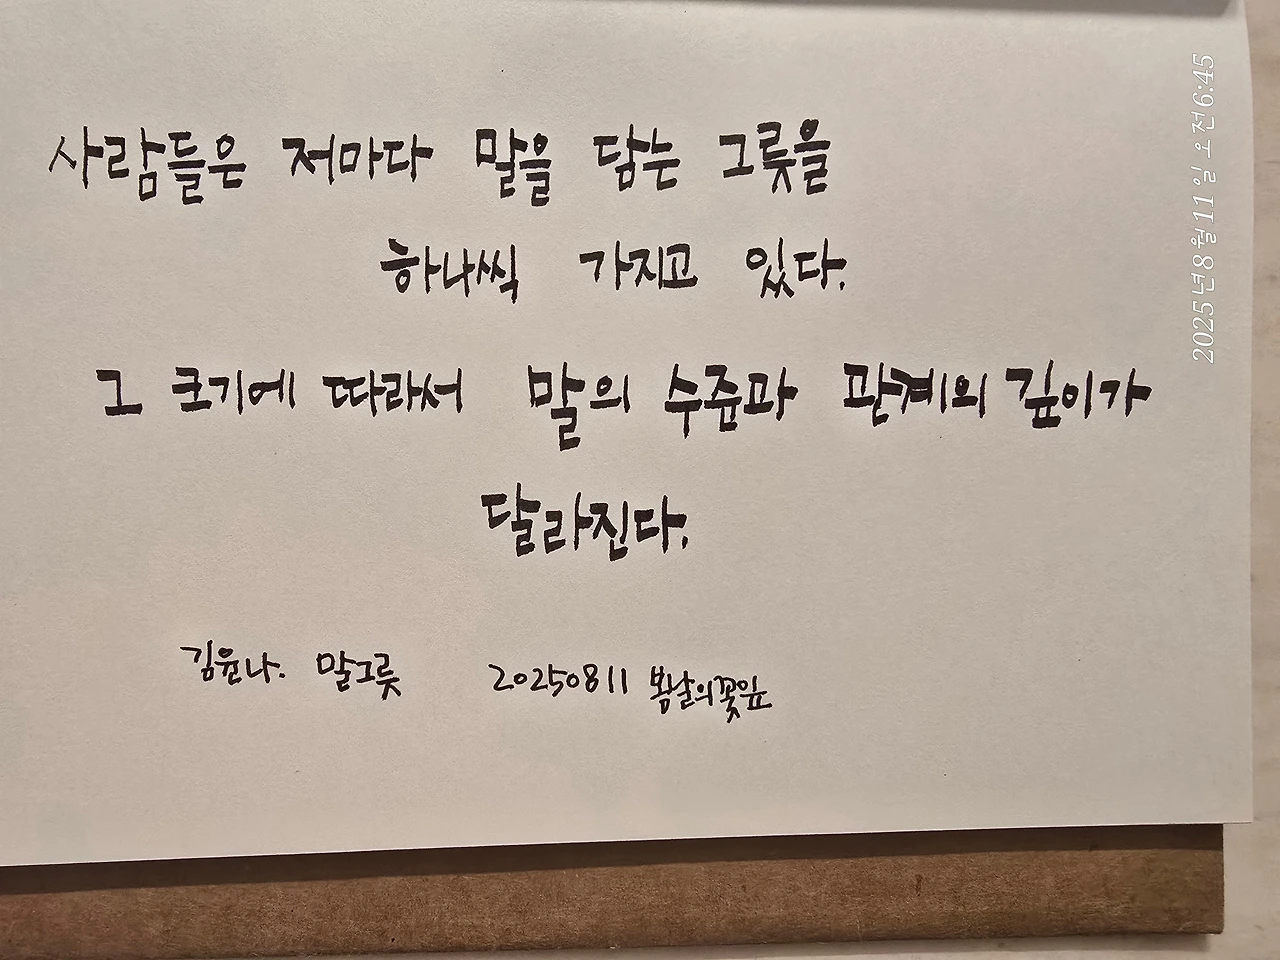 사람들은 저마다 말을 담는 그릇을
하나씩 가지고 있다.
그 크기에 따라서 말의 수준과 관계의 깊이가
달라진다.
김윤나. 말그릇 20250811 봄날의꽃잎
2025년 8월 11일 오전 6:45